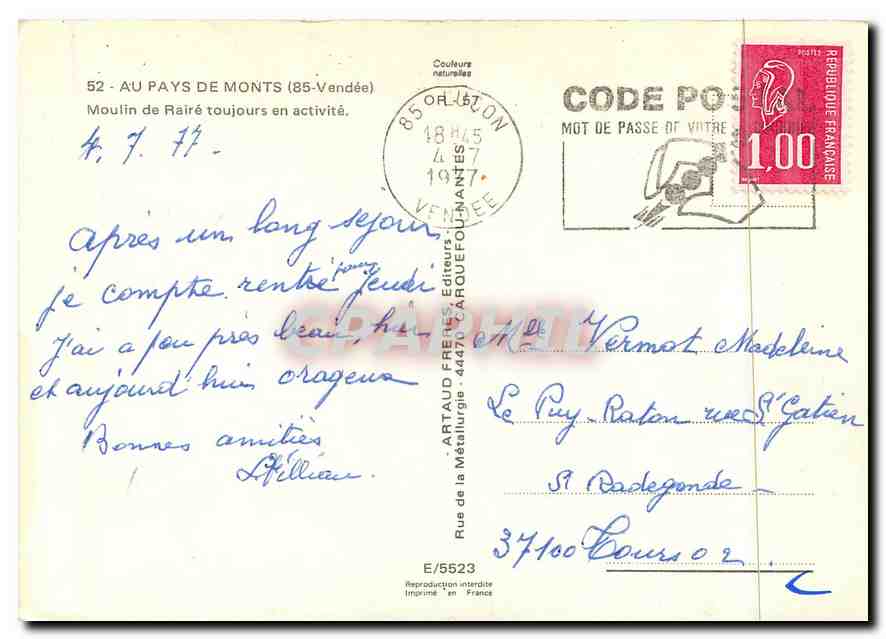 52 - AU PAYS DE MONTS (85-Vendée)
Moulin de Rairé toujours en activité.
4.7.77.
Après un long sejour
je compte rentré pour Jeudi
J'ai a peu près beau, hui
et aujourd'hui orageux
Bonnes amitiés
Couleurs
naturelles
- ARTAUD FRERES, Editeurs -
Rue de la Métallurgie - 44470 CARQUEFOU-NANTES
E/5523
Reproduction interdite
Imprimé en France
85 LUÇON
18H45
4-7
1977
VENDEE
CODE POSTAL
MOT DE PASSE DE VOTRE
POSTES
REPUBLIQUE FRANÇAISE
1,00
CPAPHIL
Mlle Vermot Madeleine
Le Puy-Raton rue St Gatien
St Radegonde -
37100 Tours 02.